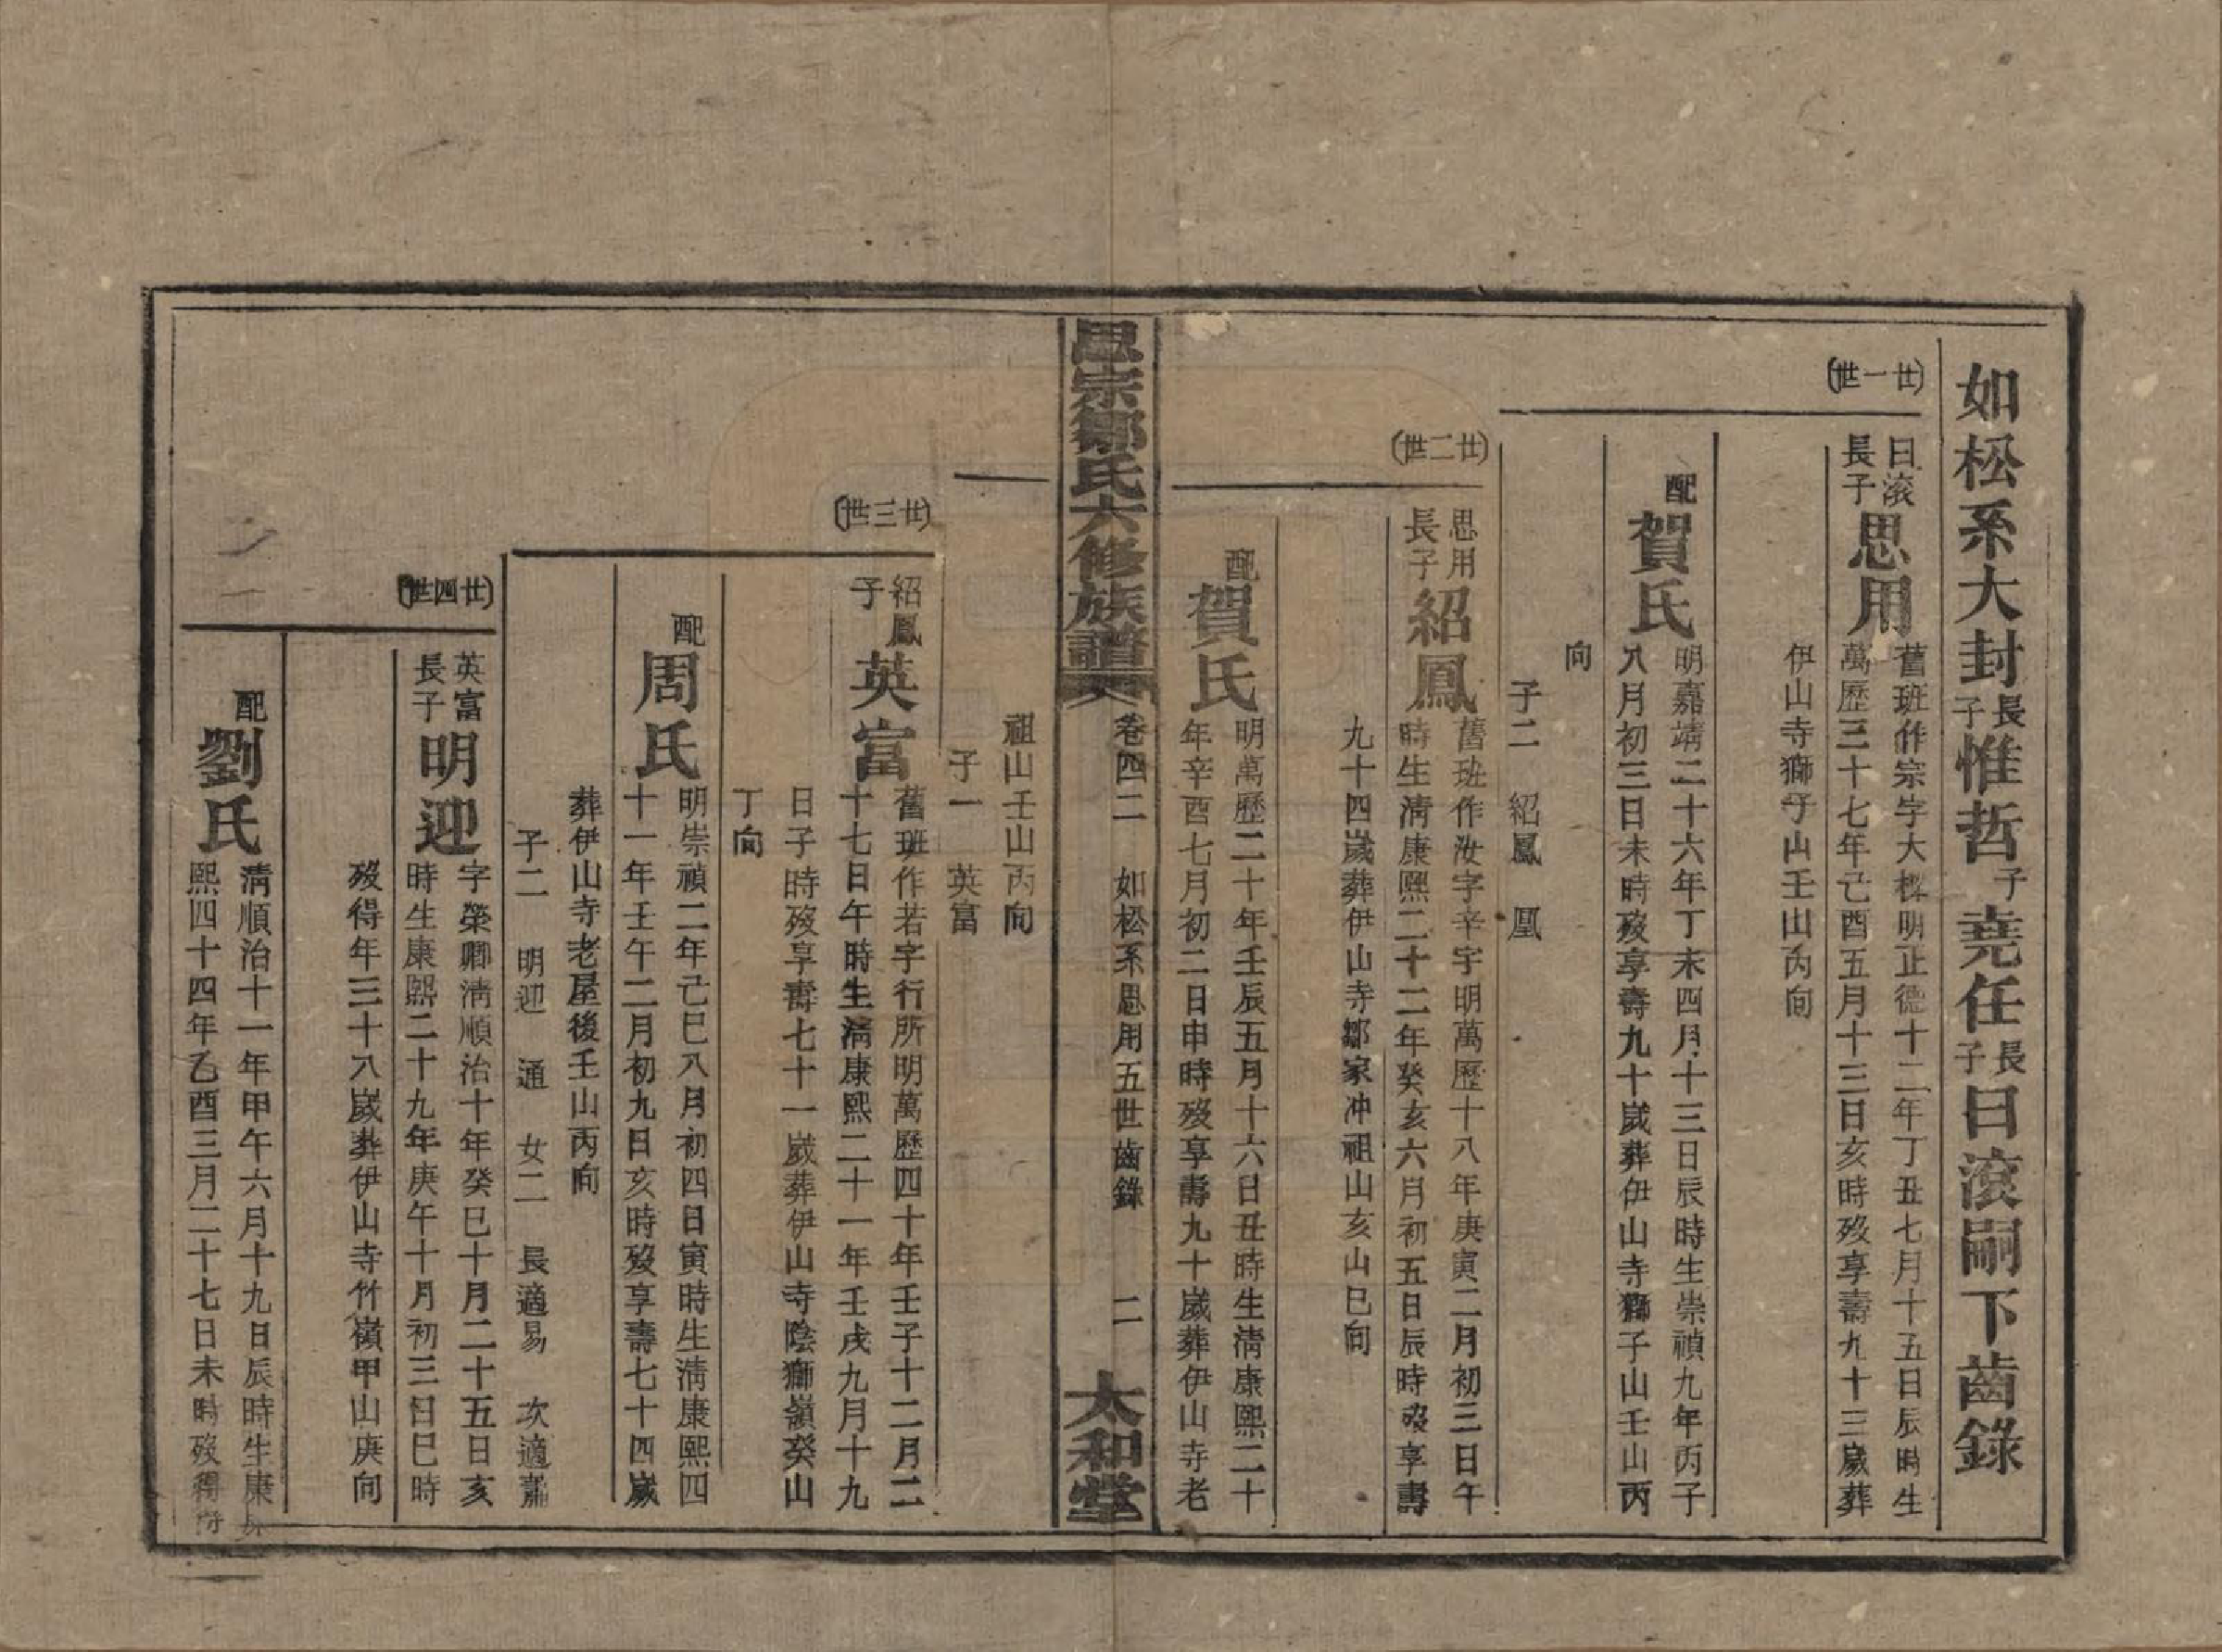 如松系大封長子惟哲子堯任長子日滾嗣下齒錄
(廿一世)
日滾長子思用
舊班作宗字大樑明正德十二年丁丑七月十五日辰時生
萬歷三十七年己酉五月十三日亥時歿享壽九十三歲葬
伊山寺獅子山壬山丙向
配賀氏
明嘉靖二十六年丁未四月十三日辰時生崇禎九年丙子
八月初三日未時歿享壽九十歲葬伊山寺獅子山壬山丙
向
子二 紹鳳 凰
(廿二世)
思用長子紹鳳
舊班作汝字辛宇明萬歷十八年庚寅二月初三日午
時生清康熙二十二年癸亥六月初五日辰時歿享壽
九十四歲葬伊山寺鄒家冲祖山亥山巳向
配賀氏
明萬歷二十年壬辰五月十六日丑時生清康熙二十
年辛酉七月初二日申時歿享壽九十歲葬伊山寺老
邑宗鄒氏六修族譜 卷四二 如松系思用五世齒錄 二 太和堂
祖山壬山丙向
子一 英富
(廿三世)
紹鳳子英富
舊班作若字行所明萬歷四十年壬子十二月二
十七日午時生清康熙二十一年壬戌九月十九
日子時歿享壽七十一歲葬伊山寺陰獅嶺癸山
丁向
配周氏
明崇禎二年己巳八月初四日寅時生清康熙四
十一年壬午二月初九日亥時歿享壽七十四歲
葬伊山寺老屋後壬山丙向
子二 明迎 通 女二 長適易 次適蕭
(廿四世)
英富長子明迎
字榮卿清順治十年癸巳十月二十五日亥
時生康熙二十九年庚午十月初三日巳時
歿得年三十八歲葬伊山寺竹嶺甲山庚向
配劉氏
清順治十一年甲午六月十九日辰時生康
熙四十四年乙酉三月二十七日未時歿得